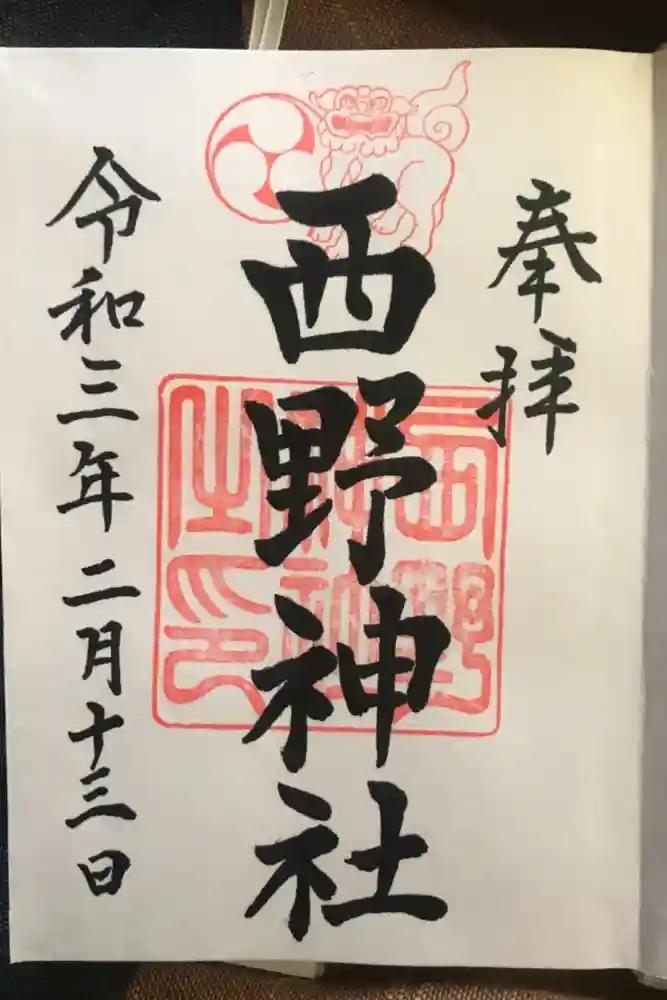 奉拝
西野神社
西野神社之印
令和三年二月十三日